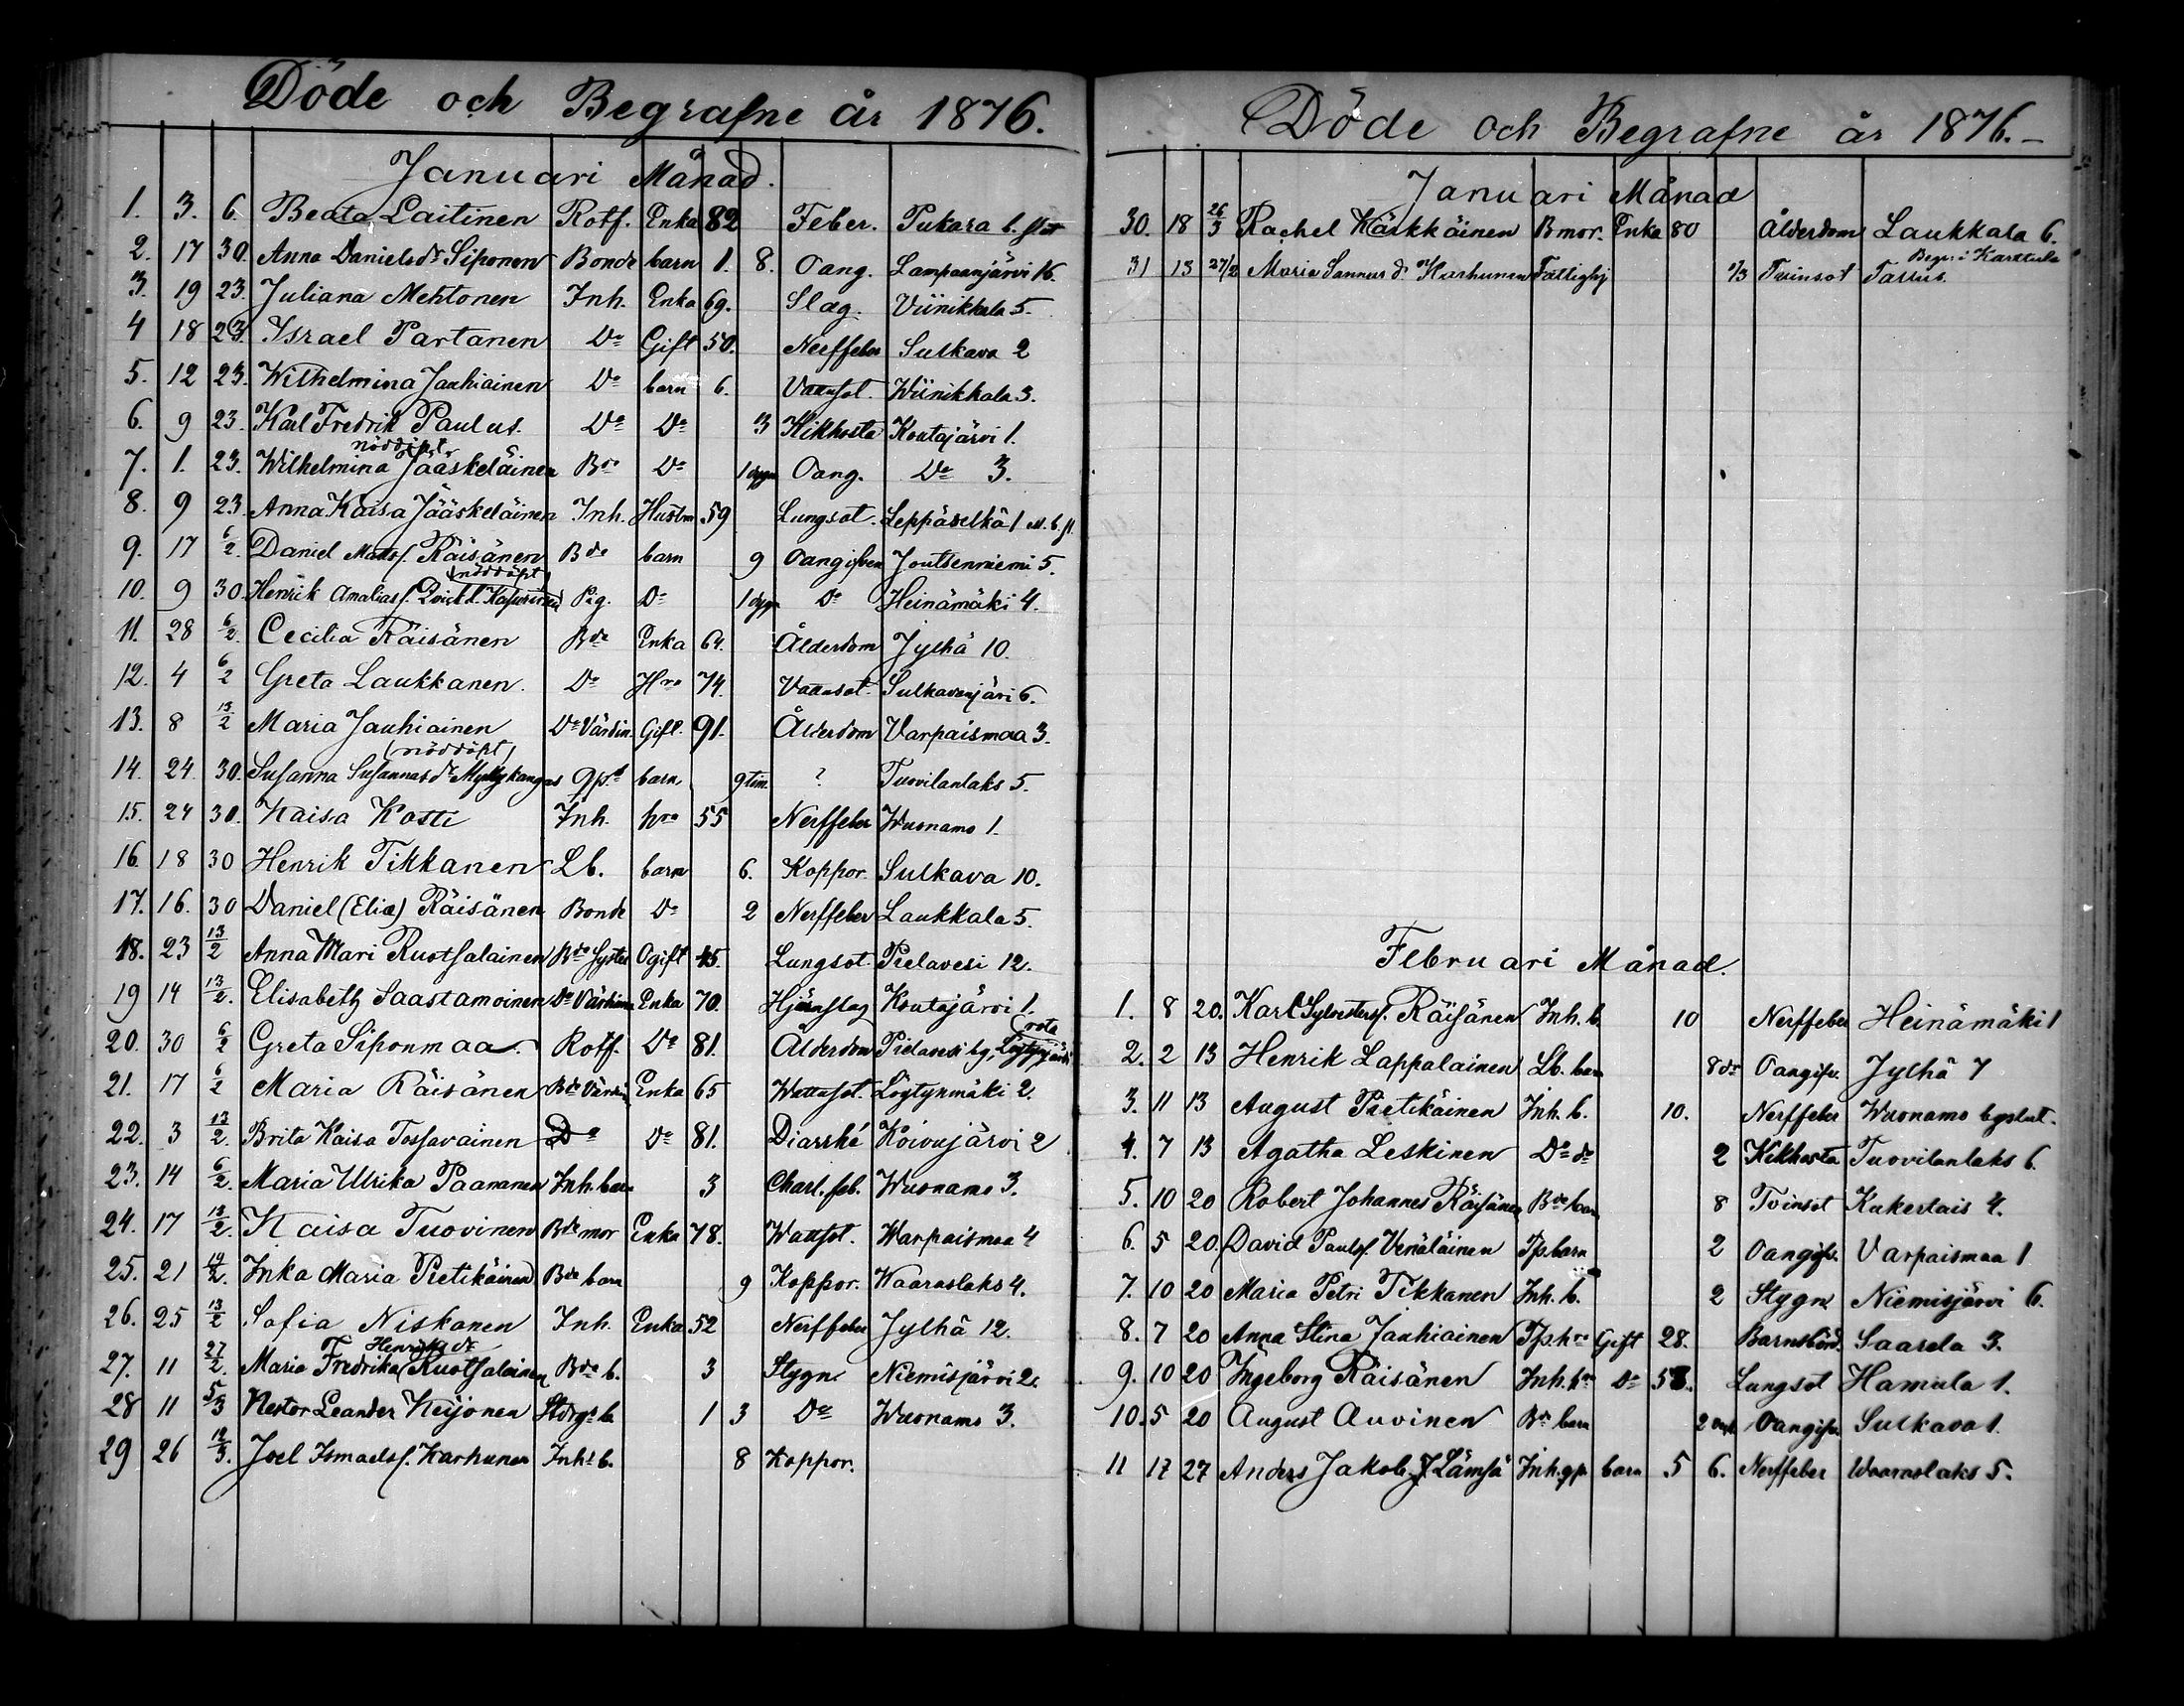 Döde och Begrafne år 1876.
Januari Månad.
1. 3. 6. Beata Laitinen Rotf. Enka 82 Feber. Pukara b. slut
2. 17 30. Anna Danielsdr Siponen Bonde barn 1. 8. Oang. Lampaanjärvi 16.
3. 19 23. Juliana Mehtonen Inh. Enka 69. Slag. Viinikkala 5.
4 18 23. Israel Partanen Do Gift 50. Nerffeber Sulkava 2
5. 12 23. Wilhelmina Jauhiainen Do barn 6. Vattusot. Wiinikkala 3.
6. 9 23. Karl Fredrik Paulus. Do Do 3 Kikhosta Koutajärvi 1.
nöddöpt
7. 1. 23. Wilhelmina Jääskeläinen Bde Do 1 dygn Oang. Do 3.
8. 9 23. Anna Kaisa Jääskeläinen Inh. Hustru 59 Lungsot. Leppäselkä 1
9. 17 6/2. Daniel Matss. Räisänen Bde barn 9 Oangifven Joutsenniemi 5.
(nöddöpt)
10. 9 30. Henrik Amalias s. Pig. Do 1 dygn Do Heinämäki 4.
11. 28 6/2. Cecilia Räisänen Bde Enka 64. Ålderdom Jylhä 10.
12. 4 6/2 Greta Laukkanen. Do Hru 74. Vattusot. Sulkavanjärvi 6.
13. 8 13/2 Maria Jauhiainen Do Värdin. Gift. 91. Ålderdom Varpaismaa 3.
(nöddöpt)
14. 24. 30. Susanna Susannasdr Myllykangas barn 9 tim. ? Tuovilanlaks 5.
15. 24 30. Kaisa Kosti Inh. hru 55 Nerffeber Wuonamo 1.
16. 18 30 Henrik Tikkanen Lb. barn 6. Koppor. Sulkava 10.
17. 16. 30 Daniel (Elia) Räisänen Bonde Do 2 Nerffeber Laukkala 5.
18. 23 13/2 Anna Mari Ruotsalainen Bde Syster Ogift 45. Lungsot. Pielavesi 12.
19 14 13/2. Elisabeth Saastamoinen Do Värdinna Enka 70. Hjärnslag Koutajärvi 1.
(rota
20. 30 6/2 Greta Siponmaa. Rotf. Do 81. Ålderdom Pielavesi by,
21. 17 6/2 Maria Räisänen Bde Värdin. Enka 65 Wattusot. Löytynmäki 2.
22. 3 13/2. Brita Kaisa Tossavainen Do Do 81. Diarrhé Koivujärvi 2
23. 14 6/2. Maria Ulrika Paananen Inh. barn 3 Charl. feb. Wuonamo 3.
24. 17 13/2. Kaisa Tuovinen Bde mor Enka 78. Wattsot. Warpaismaa 4
25. 21 14/2. Inka Maria Pietikäinen Bde barn 9 Koppor. Waaraslaks 4.
26. 25 13/2 Sofia Niskanen Inh. Enka 52 Nerffeber Jylhä 12.
Henriks dr
27. 11 27/2. Maria Fredrika Ruotsalainen Bde b. 3 Stygn. Niemisjärvi 2.
28 11 5/3 Nestor Leander Keijonen b. 1 3 Do Wuonamo 3.
29 26 12/3. Joel Ismaels s. Karhunen Inh. b. 8 Koppor.
Döde och Begrafne år 1876.-
Januari Månad
30. 18 26/3 Rachel Kärkkäinen Bmor. Enka 80 Ålderdom Laukkala 6.
Begr. i Karttula
31 13 27/2 Maria Sannas dr Karhunen Fattighj Tvinsot Tarrus.
Februari Månad.
1. 8 20. Karl Sylvesters s. Räisänen Inh. b. 10 Nerffeber Heinämäki 1
2. 2 13 Henrik Lappalainen Lb. barn 8 dr Oangifv. Jylhä 7
3. 11 13 August Pietikäinen Inh. b. 10. Nerffeber Wuonamo bgslut.
4. 7 13 Agatha Leskinen Do do 2 Kikhosta Tuovilanlaks 6.
5. 10 20 Robert Johannes Räisänen Bde barn 8 Tvinsot Kukertais 4.
6. 5 20. David Pauls s. Venäläinen Tp. barn 2 Oangifv. Varpaismaa 1
7. 10 20 Maria Petri Tikkanen Inh. b. 2 Stygn Niemisjärvi 6.
8. 7 20 Anna Stina Jauhiainen Tp. hru Gift 28. Barnsbörd. Saarela 3.
9. 10 20 Ingeborg Räisänen Inh. hru Do 58. Lungsot Hamula 1.
10. 5 20 August Auvinen Bde barn 2 Oangifv. Sulkava 1.
11 17 27 Anders Jakob J Lämsä Inh. gp barn 5 6. Nerffeber Waaraslaks 5.